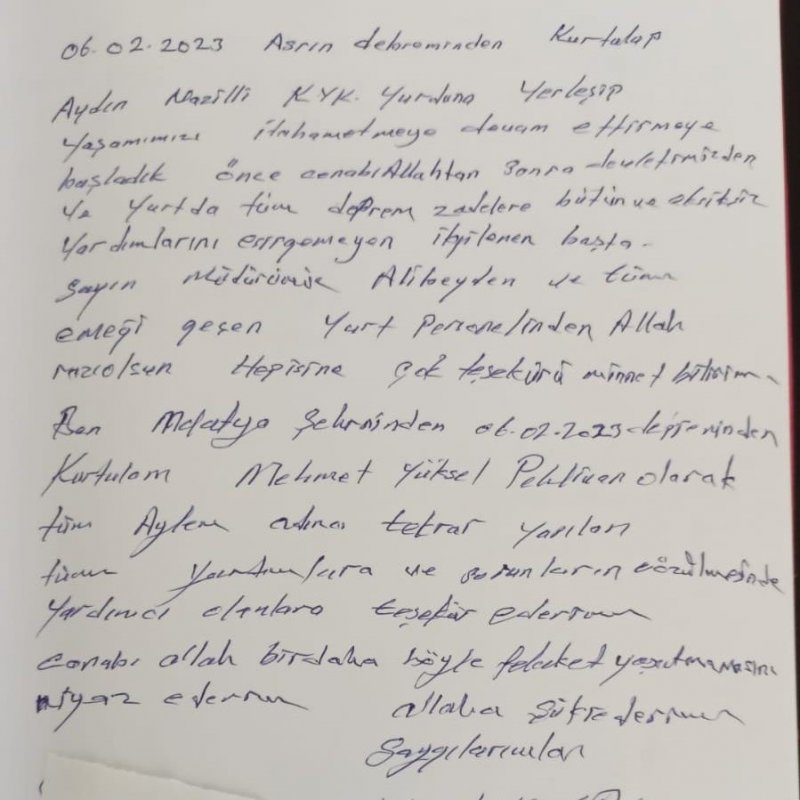 06.02.2023 Asrın debreminden Kurtulup
Aydın Nazilli K.Y.K. Yurduna Yerleşip
yaşamımızı itahametmeye devam ettirmeye
başladık önce cenabıAllahtan sonra devletimizden
ve Yurtda tüm deprem zadelere bütün ve eksiksiz
Yardımlarını esirgemeyen ilgilenen başta
Sayın Müdürümüz Alibeyden ve tüm
emeği geçen Yurt Personelinden Allah
razıolsun Hepisine çok teşekürü minnet bilirim.
Ben Malatya Şehrninden 06.02.2023 depreminden
Kurtulam Mehmet Yüksel Pehlivan olarak
tüm Aylem adına tekrar yapılan
tüm yardımlara ve sorunların çözülmesinde
Yardımcı olanlara teşekür ederim
cenabı allah birdaha böyle felaket yaşatmamasını
niyaz ederim allaha Şükrederim
Saygılarımlan